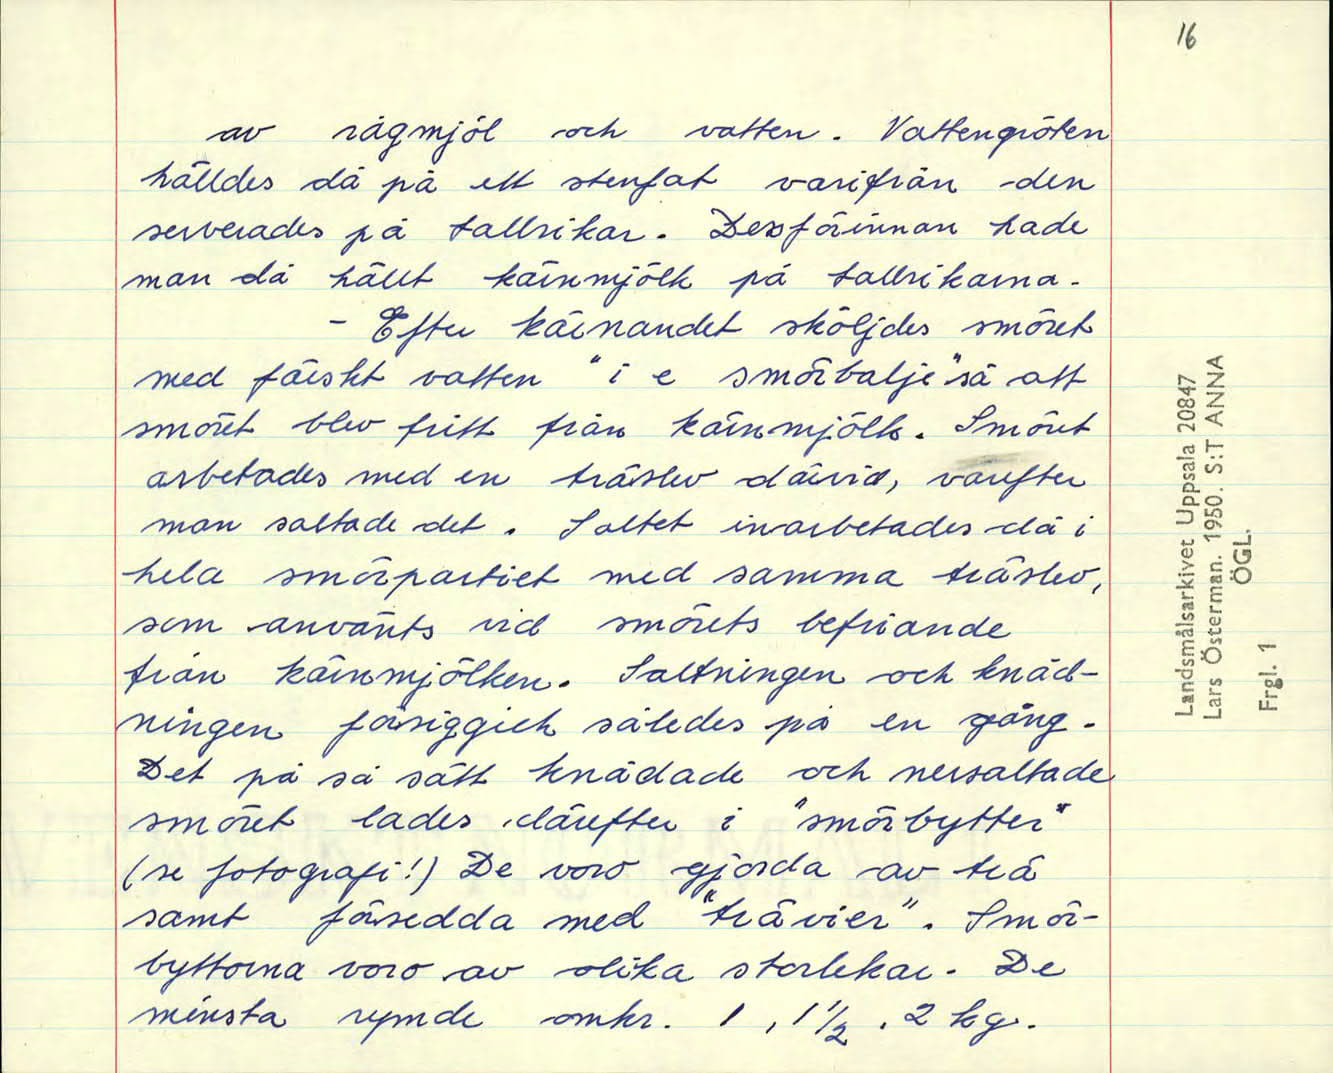 16
av rågmjöl och vatten. Vattengröten
hälldes då på ett stenfat varifrån den
serverades på tallrikar. Dessförinnan hade
man då hällt kärnmjölk på tallrikarna.
- Efter kärnandet sköljdes smöret
med färskt vatten "i e smörbalje" så att
smöret blev fritt från kärnmjölk. Smöret
arbetades med en träslev därvid, varefter
man saltade det. Saltet inarbetades då i
hela smörpartiet med samma träslev,
som använts vid smörets befriande
från kärnmjölken. Saltningen och knåd-
ningen försiggick således på en gång.
Det på så sätt knådade och nersaltade
smöret lades därefter i "smörbytter"
(se fotografi!) De voro gjorda av trä
samt försedda med "trävier". Smör-
byttorna voro av olika storlekar. De
minsta rymde omkr. 1, 1 1/2, 2 kg.
Landsmålsarkivet Uppsala 20847
Lars Österman. 1950. S:T ANNA
ÖGL.
Frgl. 1